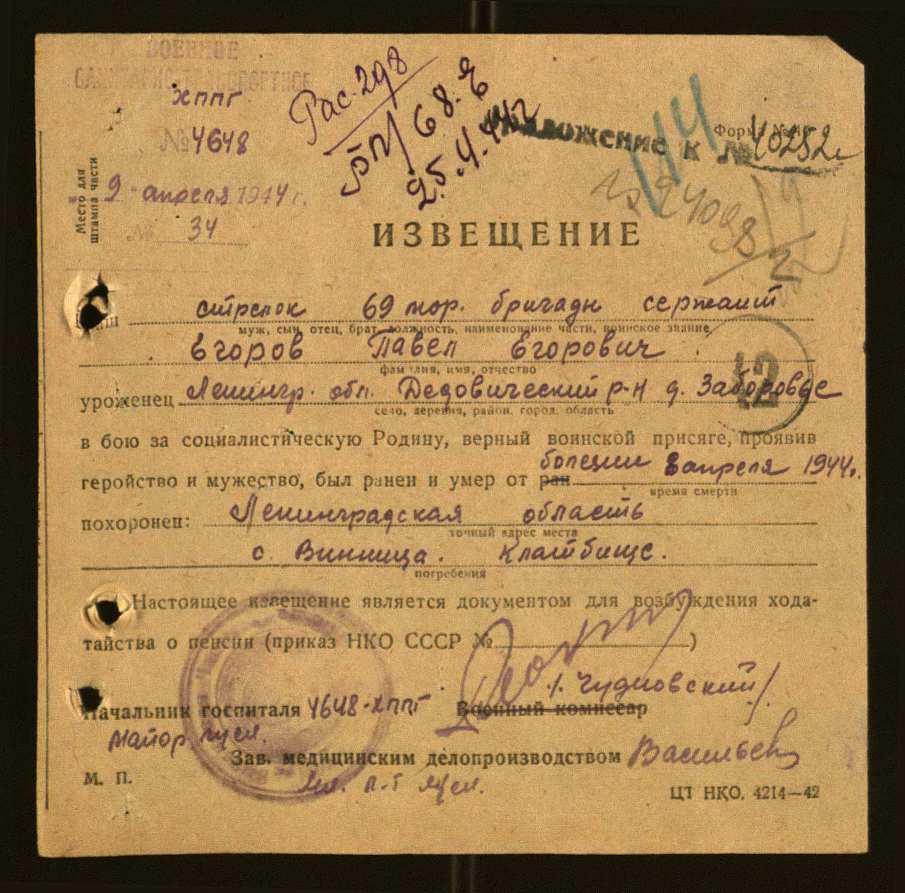 ВОЕННОЕ
САНИТАРНО-ТРАНСПОРТНОЕ
ХППГ
№ 4648
Место для
штампа части
9 апреля 1944 г.
№ 34
Рас-298
68.
25.4.44г
Приложение к № 40252с
144
Форма №
24098
ИЗВЕЩЕНИЕ
стрелок 69 мор. бригады сержант
муж, сын, отец, брат, должность, наименование части, воинское звание
Егоров Павел Егорович
фамилия, имя, отчество
12
уроженец Ленингр. обл. Дедовический р-н д. Заборовье
село, деревня, район, город, область
в бою за социалистическую Родину, верный воинской присяге, проявив
геройство и мужество, был ранен и умер от ран болезни 8 апреля 1944г.
время смерти
похоронен: Ленинградская область
точный адрес места
с. Винница. Кладбище.
погребения
Настоящее извещение является документом для возбуждения хода-
тайства о пенсии (приказ НКО СССР № )
/Чудновский/
Начальник госпиталя 4648-ХППГ Военный комиссар
Майор м/сл.
Зав. медицинским делопроизводством Васильев
М. П.
мл. л-т м/сл.
ЦТ НКО. 4214—42